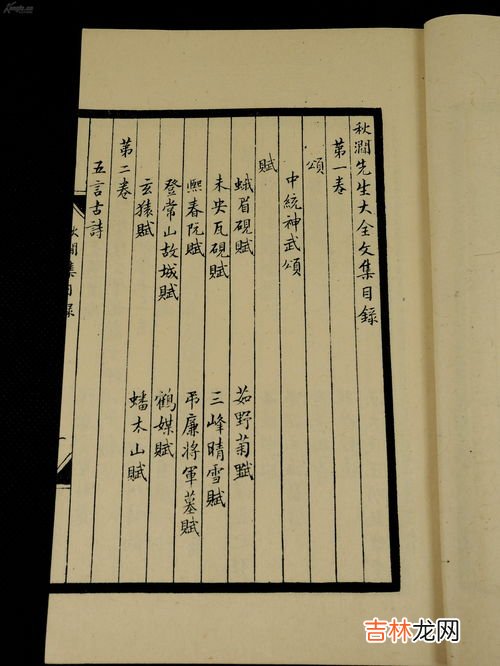 秋澗先生大全文集目錄
第一卷
頌
中統神武頌
賦
蛾眉硯賦
茹野菊賦
未央瓦硯賦
三峰晴雪賦
熙春阮賦
弔廉將軍墓賦
登常山故城賦
鶴媒賦
玄猿賦
蟠木山賦
第二卷
五言古詩
秋澗集目錄
Kongfz.cn
吉林龙网